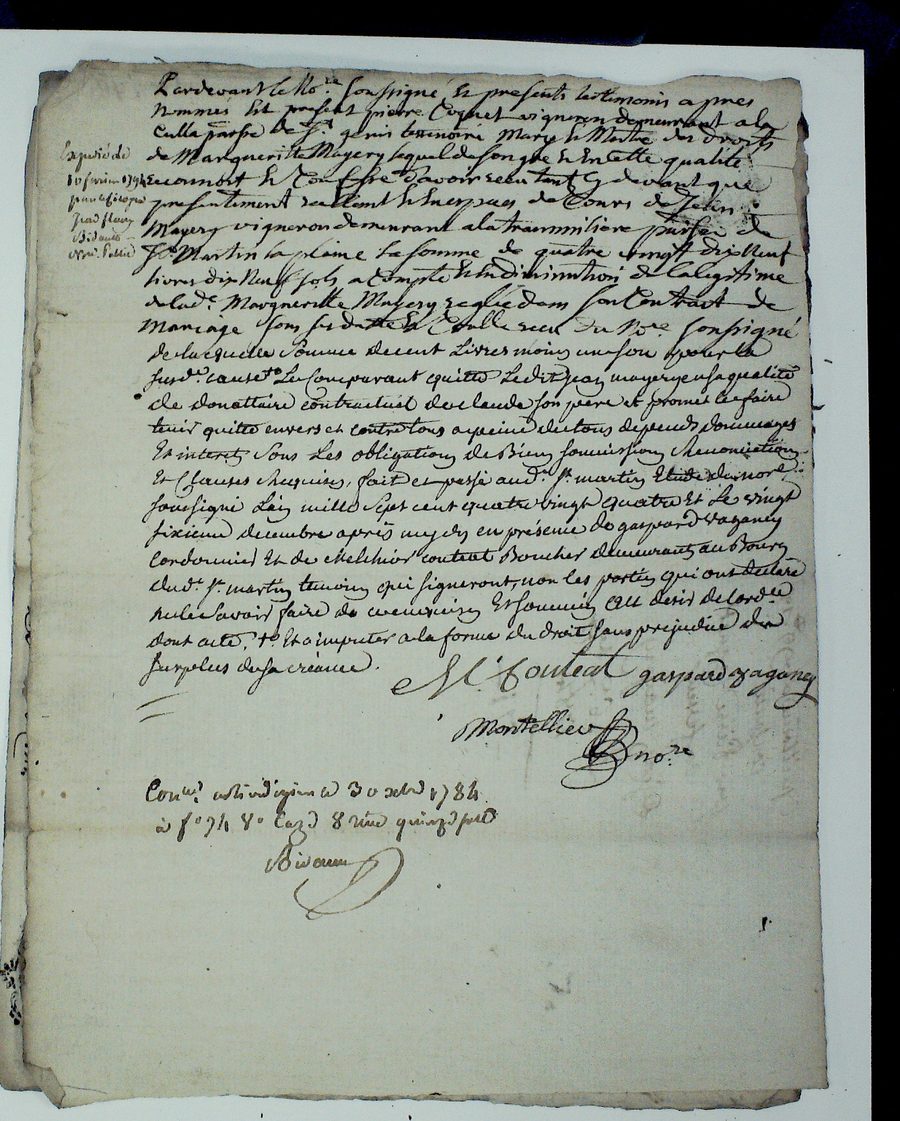 Pardevant le No.re soussigné Et presents les temoins apres
Nommés Est present pierre Coquet vigneron demeurant a la
Calla parsse de St. genis terrenoire Mary Et Maitre des droits
de Margueritte Mayery lequel de son gre Et En cette qualité
reconnoit Et Confesse d'avoir recu tant Cy devant que
presentement reellement Et En Especes de Cours de Jean
Mayery vigneron demeurant a la tranmiliere parsse de
St. Martin la plaine La somme de quatre vingt dix Neuf
livres dix Neuf sols a Compte Et En diminution de la legitime
de lad.e Margueritte Mayery reglée dans son Contrat de
Mariage sous sa datte Et Controlle recu du No.re soussigné
de laquelle somme de cent Livres moins un sou pour la
susd.e cause Le comparant quitte Ledit jean mayery en sa qualité
de donattaire contractuel de claude son pere et promet le faire
tenir quitte envers et contre tous a peine de tous depends dommages
Et interets Sous Les obligations de Biens soumissions Renonciations
Et Clauses Requises, fait et passé aud.t St. martin Etude du nore
soussigné L'an mille sept cent quatre vingt quatre Et Le vingt
sixieme decembre après mydy en présence de gaspard vaganey
Cordonnier Et de Melchior couteat Boucher demeurants au Bourg
dud.t St. martin temoins qui signeront, non les parties qui ont déclaré
ne le savoir faire de ce enquises Et sommées au desir de l'ord.ce
dont acte. Et a imputer a la forme du droit sans prejudice du
surplus de sa créance.
M. Couteat gaspard vaganey
Montellier
no.re
Expedié le
10 fevrier 1794
Con.lé a Rivedegier le 30 xbre 1784
à fo 74 Vo Caze 8 Reçu quinze sols
Bidaum